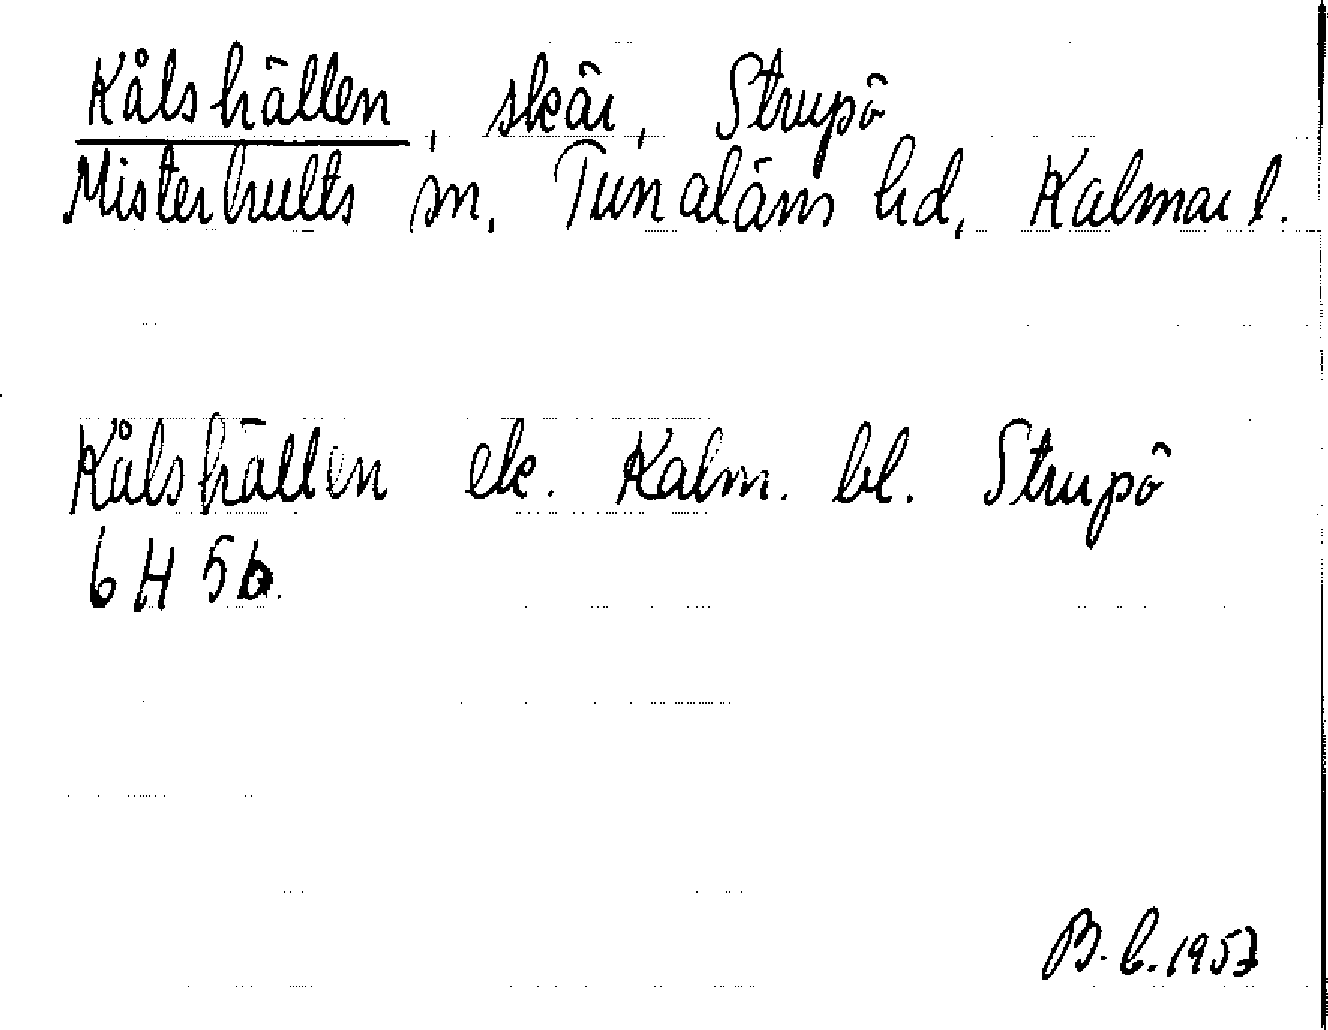 Kålshällen, skär, Strupö
Misterhults sn, Tunaläns hd, Kalmar l.
Kålshällen ek. Kalm. bl. Strupö
6 H 5 b.
B. L. 1957